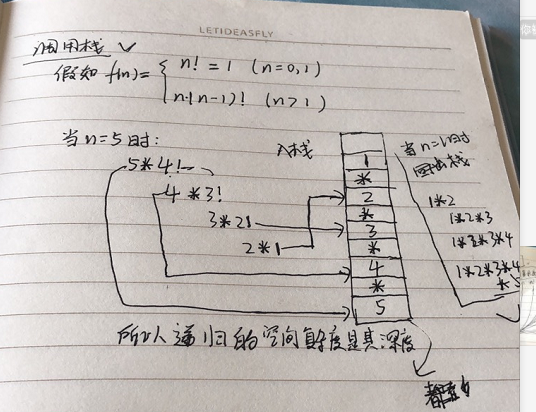 LETIDEASFLY
调用栈
假如 f(n)= { n! = 1 (n=0,1)
n·(n-1)! (n>1)
当n=5时:
5*4!
4*3!
3*2!
2*1
入栈
1
*
2
*
3
*
4
*
5
当n=1时
栈
1*2
1*2*3
1*2*3*4
1*2*3*4
*5
所以递归的空间复杂度是其深度